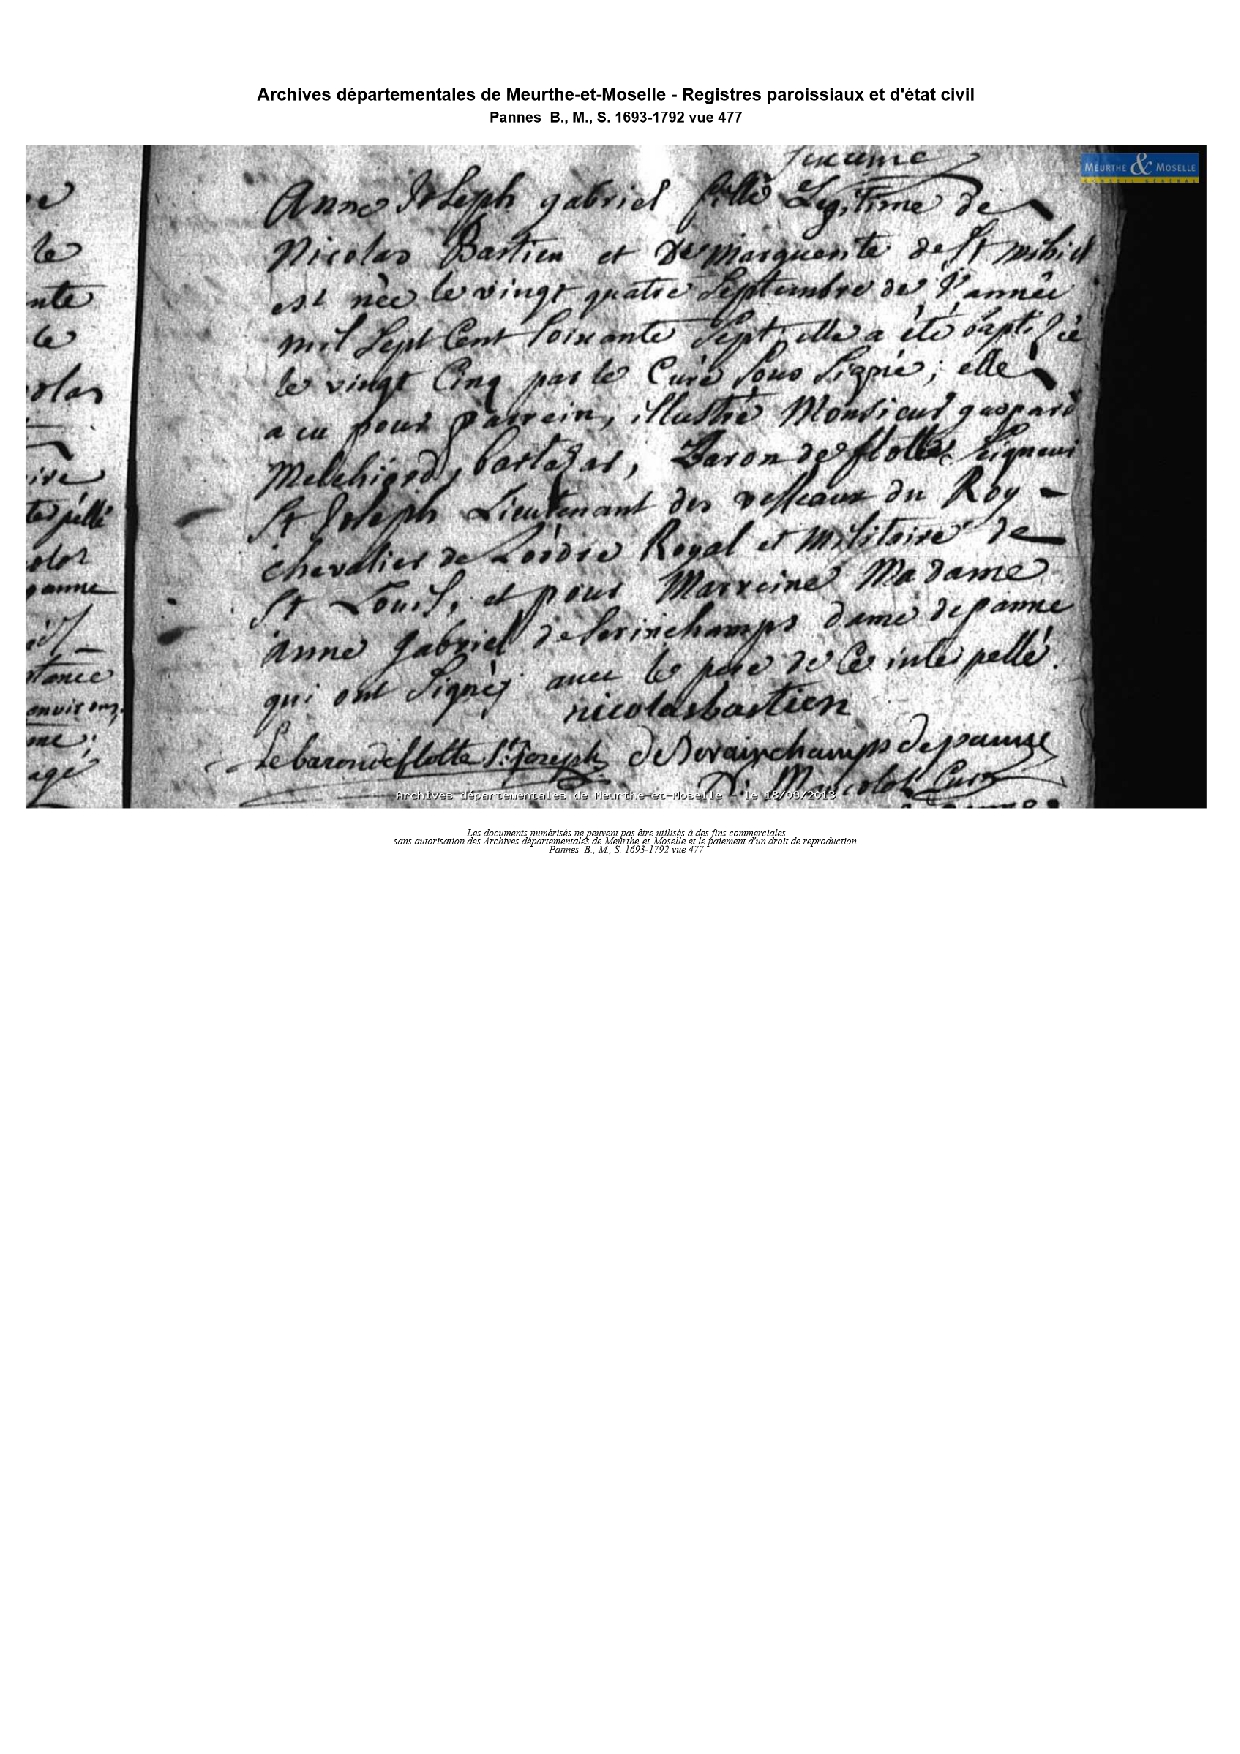 Archives départementales de Meurthe-et-Moselle - Registres paroissiaux et d'état civil
Pannes B., M., S. 1693-1792 vue 477
MEURTHE & MOSELLE
Anne Joseph gabriel fille Legitime de
Nicolas Bastien et De Marguerite de St mihiel
est née le vingt quatre Septembre de l'année
mil Sept Cent Soixante Sept, elle a été baptisée
le vingt Cinq par le Curé Sous Signé; elle
a eu pour parrein, illustre Monsieur gaspard
Melchiord, bartazar, Baron de flotte, Seigneur
St Joseph Lieutenant des vesseaux du Roy -
chevalier de Lordre Royal et Militaire de
St Louis, et pour Marreine Madame
anne gabriel de Serinchamps dame de panne
qui ont Signéz avec le pere de Ce inte pellé.
nicolas bastien
le baron de flotte St. Joseph de Serainchamps de panne
Curé
Archives départementales de Meurthe-et-Moselle - le 18/08/2013
le
nte
le
olas
ire
terpellé
olot
panne
stance
environ
me;
agé
Les documents numérisés ne peuvent pas être utilisés à des fins commerciales
sans autorisation des Archives départementales de Meurthe et Moselle et le paiement d'un droit de reproduction
Pannes B., M., S. 1693-1792 vue 477